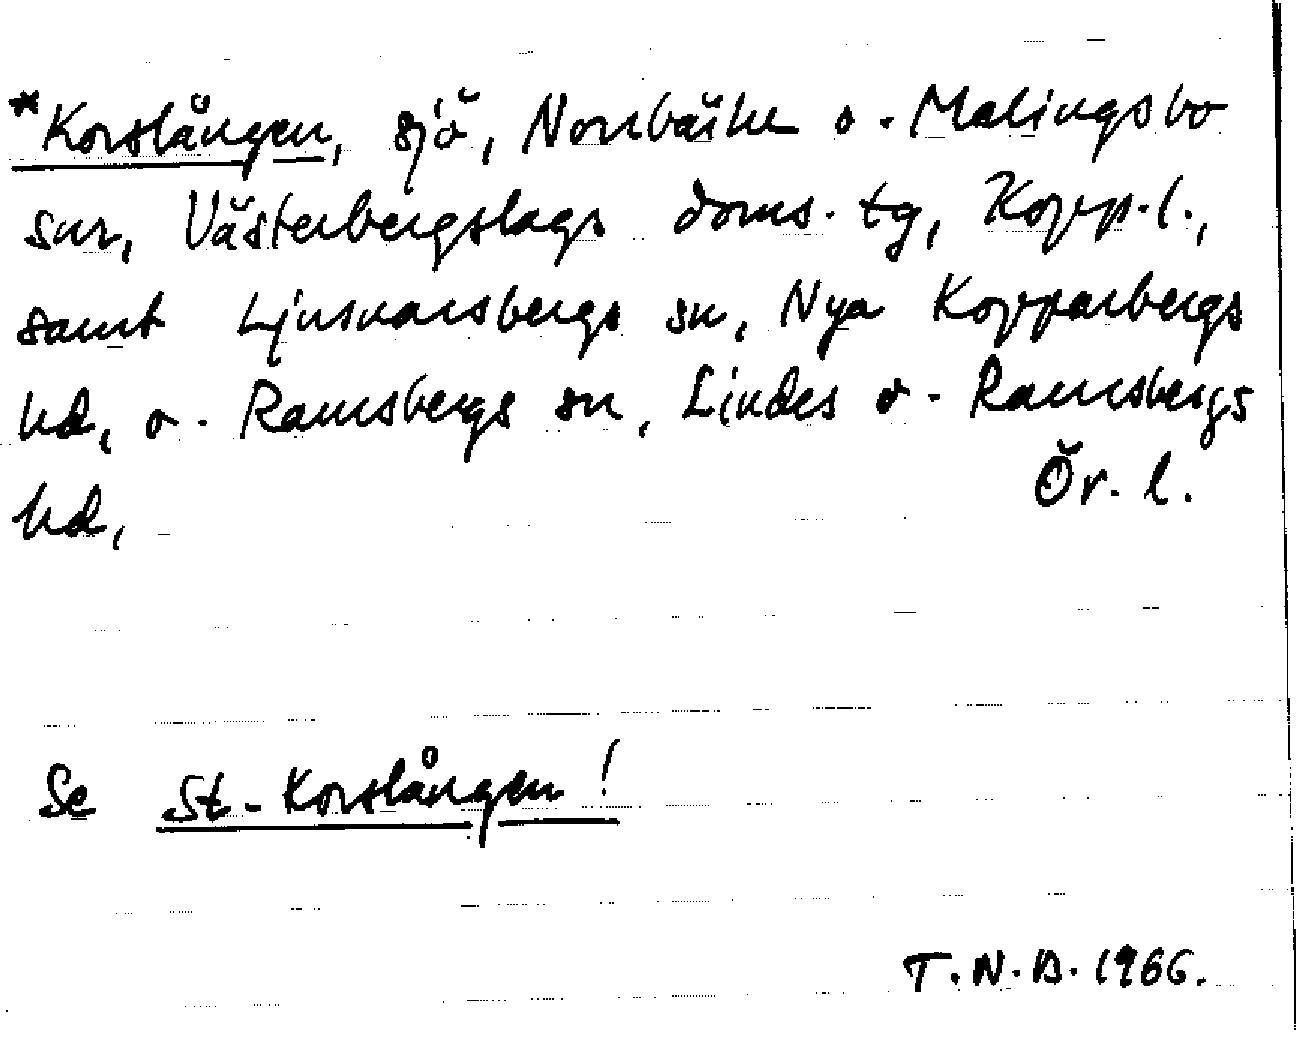 *Korslången, sjö, Norrbärke o. Malingsbo
snr, Västerbergslags doms. tg, Kopp. l.,
samt Ljusnarsbergs sn, Nya Kopparbergs
hd, o. Ramsbergs sn, Lindes o. Ramsbergs
hd, Ör. l.
Se St. Korslången!
T.N.B. 1966.